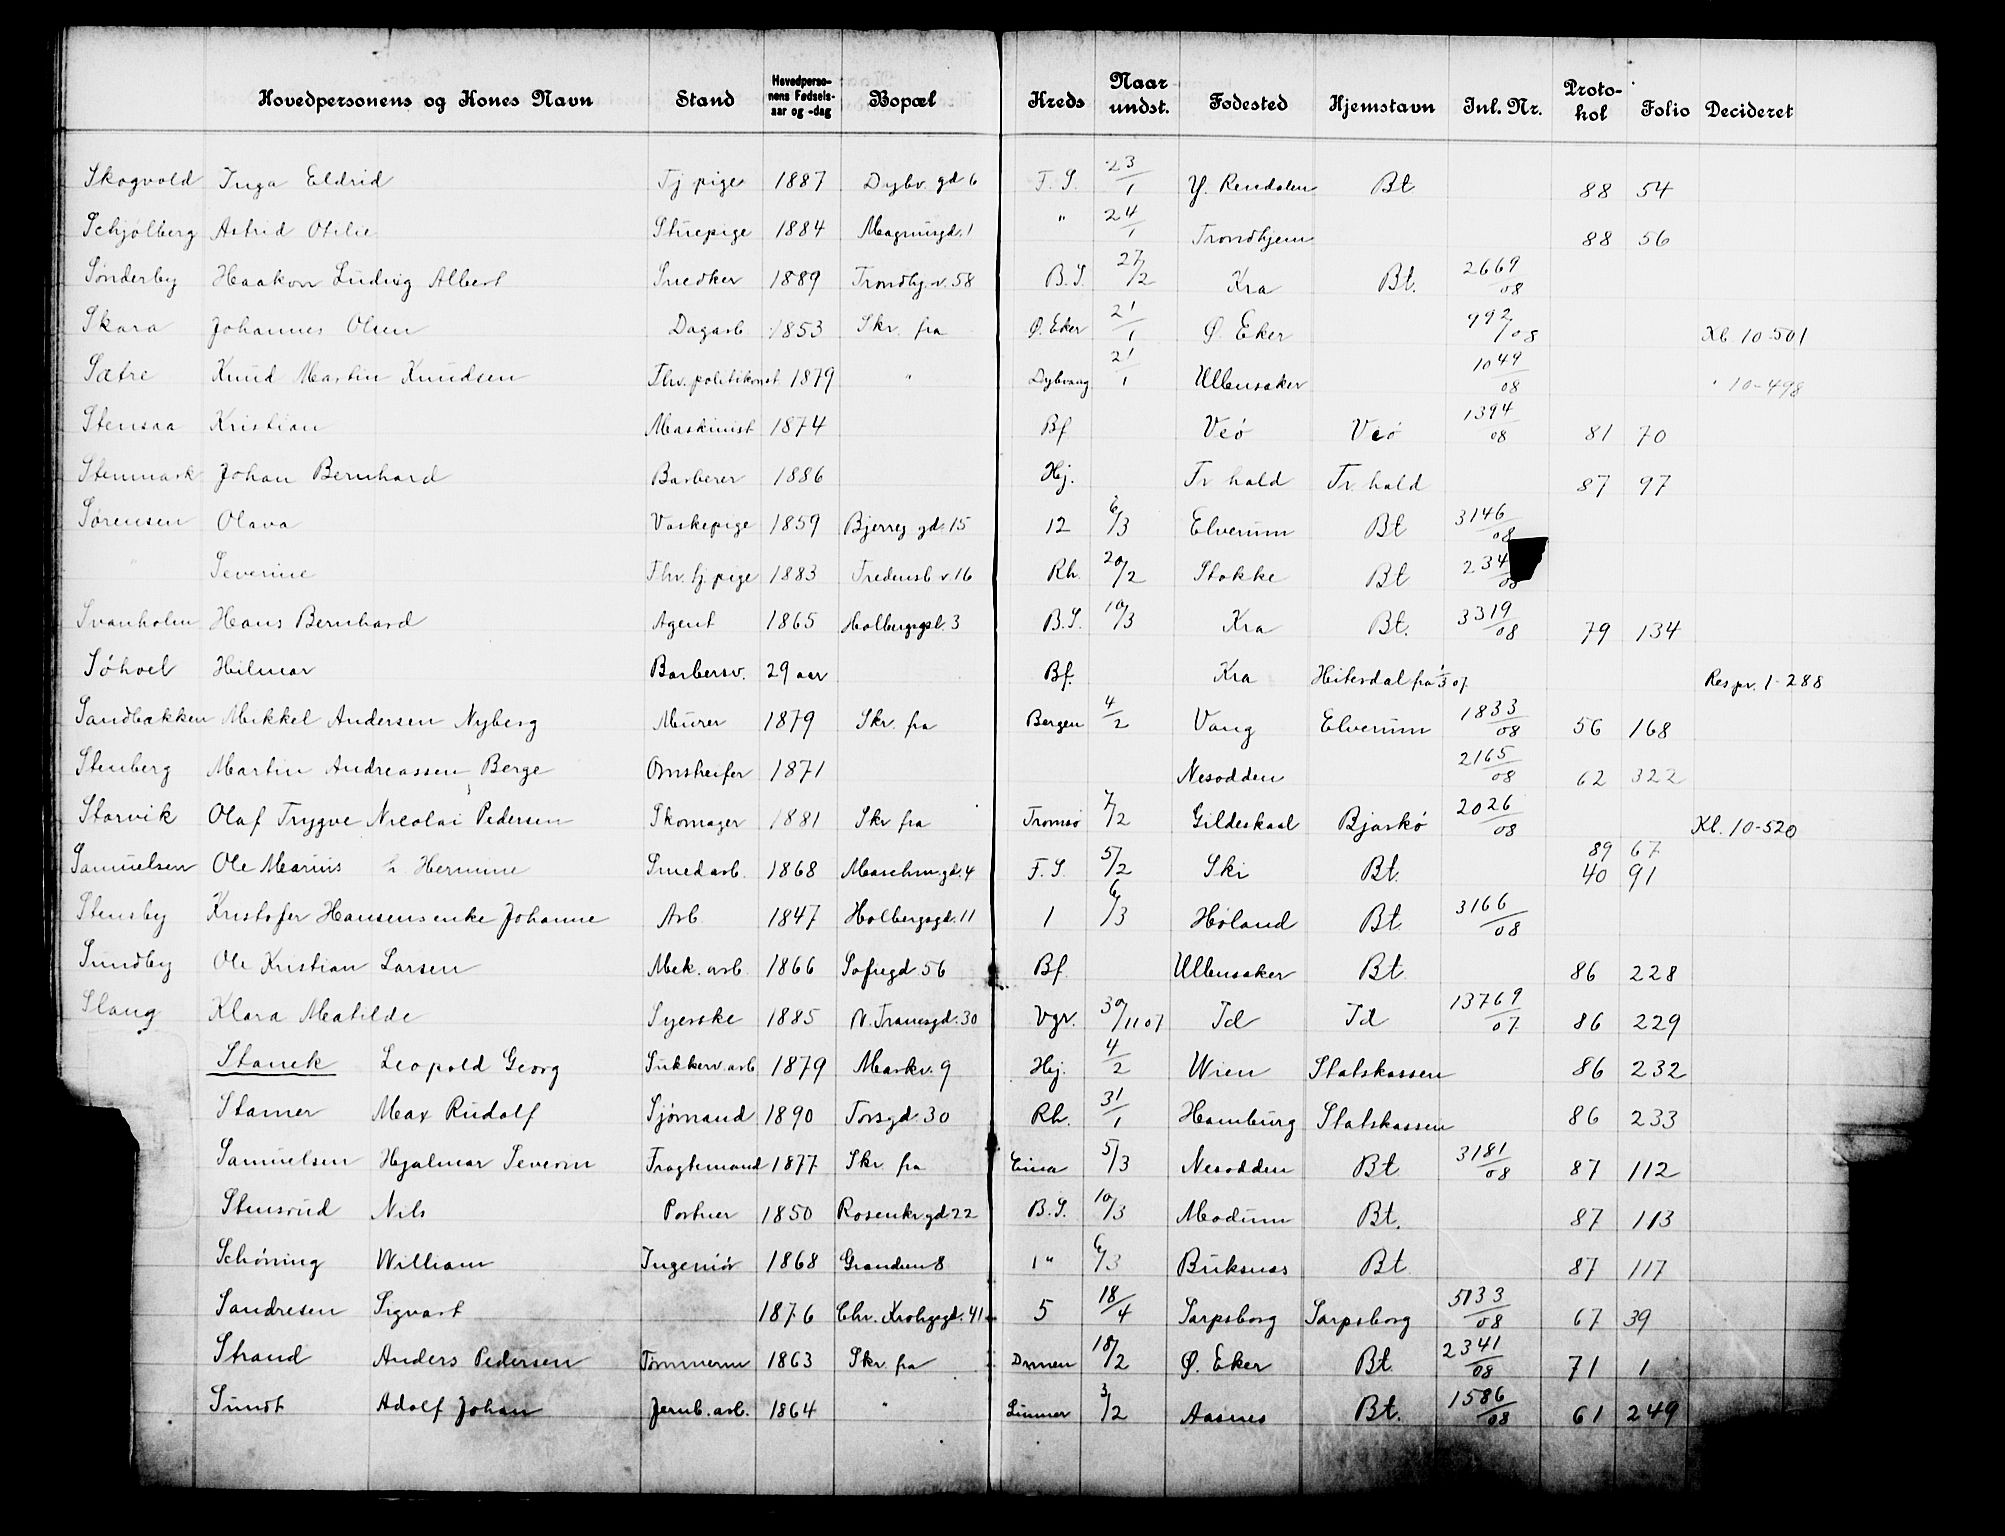 Hovedpersonens og Kones Navn Stand Hovedpersonens Fødselsaar og -dag Bopæl Kreds Naar undst. Fødested Hjemstavn Inl. Nr. Protokol Folio Decideret
Skogvold Inga Eldrid Tj pige 1887 Dybv. gd 6 F. S. 23/1 Y. Rendalen Bt 88 54
Schjølberg Astrid Otilie Stuepige 1884 Magnusgd. 1 " 24/1 Trondhjem 88 56
Sønderby Haakon Ludvig Albert Snedker 1889 Trondhj. v. 58 B. S. 27/2 Kra Bt. 2669/08
Skara Johannes Olsen Dagarb. 1853 Skr. fra Ø. Eker 21/1 Ø. Eker 992/08 Kl. 10-501
Sætre Knud Martin Knudsen Fhv. politikonst 1879 " Dybvaag 21/1 Ullensaker 1049/08 " 10-498
Stensaa Kristian Maskinist 1874 Bf Veø Veø 1394/08 81 70
Stenmark Johan Bernhard Barberer 1886 Hj. Fr. hald Fr. hald 87 97
Sørensen Olava Vaskepige 1859 Bjerreg gd. 15 12 6/3 Elverum Bt 3146/08
" Severine Fhv. tj pige 1883 Fredensb v. 16 Rh. 20/2 Stokke Bt 234
Svanholm Hans Bernhard Agent 1865 Holbergsgt. 3 B. S. 10/3 Kra Bt. 3319/08 79 134
Søhoel Hilmar Barbersv. 29 aar Bf. Kra Hitterdal fra 1/3 07 Res pr. 1-288
Sandbakken Mikkel Andersen Nyberg Murer 1879 Skr. fra Bergen 4/2 Vang Elverum 1833/08 56 168
Stenberg Martin Andreassen Berge Omstreifer 1871 Nesodden 2165/08 62 322
Storvik Olaf Trygve Nicolai Pedersen Skomager 1881 Skr fra Tromsø 7/2 Gildeskaal Bjarkø 2026/08 Kl. 10-520
Samuelsen Ole Marius & Hermine Smedarb. 1868 Maschm gd. 4 F. S. 5/2 Ski Bt. 89 67
40 91
Stensby Kristofer Hansens enke Johanne Arb. 1847 Holbergsgd. 11 1 6/3 Høland Bt. 3166/08
Sundby Ole Kristian Larsen Mek. arb. 1866 Sofiegd 56 Bf. Ullensaker Bt 86 228
Slang Klara Matilde Syerske 1885 N. Tranesgd. 30 Vgr. 30/11 07 Id Id 13769/07 86 229
Stanek Leopold Georg Sukkerv. arb 1879 Markv. 9 Hj. 4/2 Wien Statskassen 86 232
Stamer Max Rudolf Sjømand 1890 Torsgd. 30 Rh. 31/1 Hamburg Statskassen 86 233
Samuelsen Hjalmar Severin Fragtemand 1877 Skr. fra Eina 5/3 Nesodden Bt 3181/08 87 112
Stensrud Nils Portner 1850 Rosenkr gd 22 B. S. 10/3 Modum Bt. 87 113
Schøning William Ingeniør 1868 Granden 8 1 " 6/3 Buksnæs Bt 87 117
Sandresen Sigvart 1876 Chr. Krohgsgd. 41 5 18/4 Sarpsborg Sarpsborg 5133/08 67 39
Strand Anders Pedersen Tømmerm 1863 Skr. fra Drmen 18/2 Ø. Eker Bt 2341/08 71 1
Sundt Adolf Johan Jernb. arb. 1864 " Lunner 3/2 Aasnes Bt. 1586/08 61 249